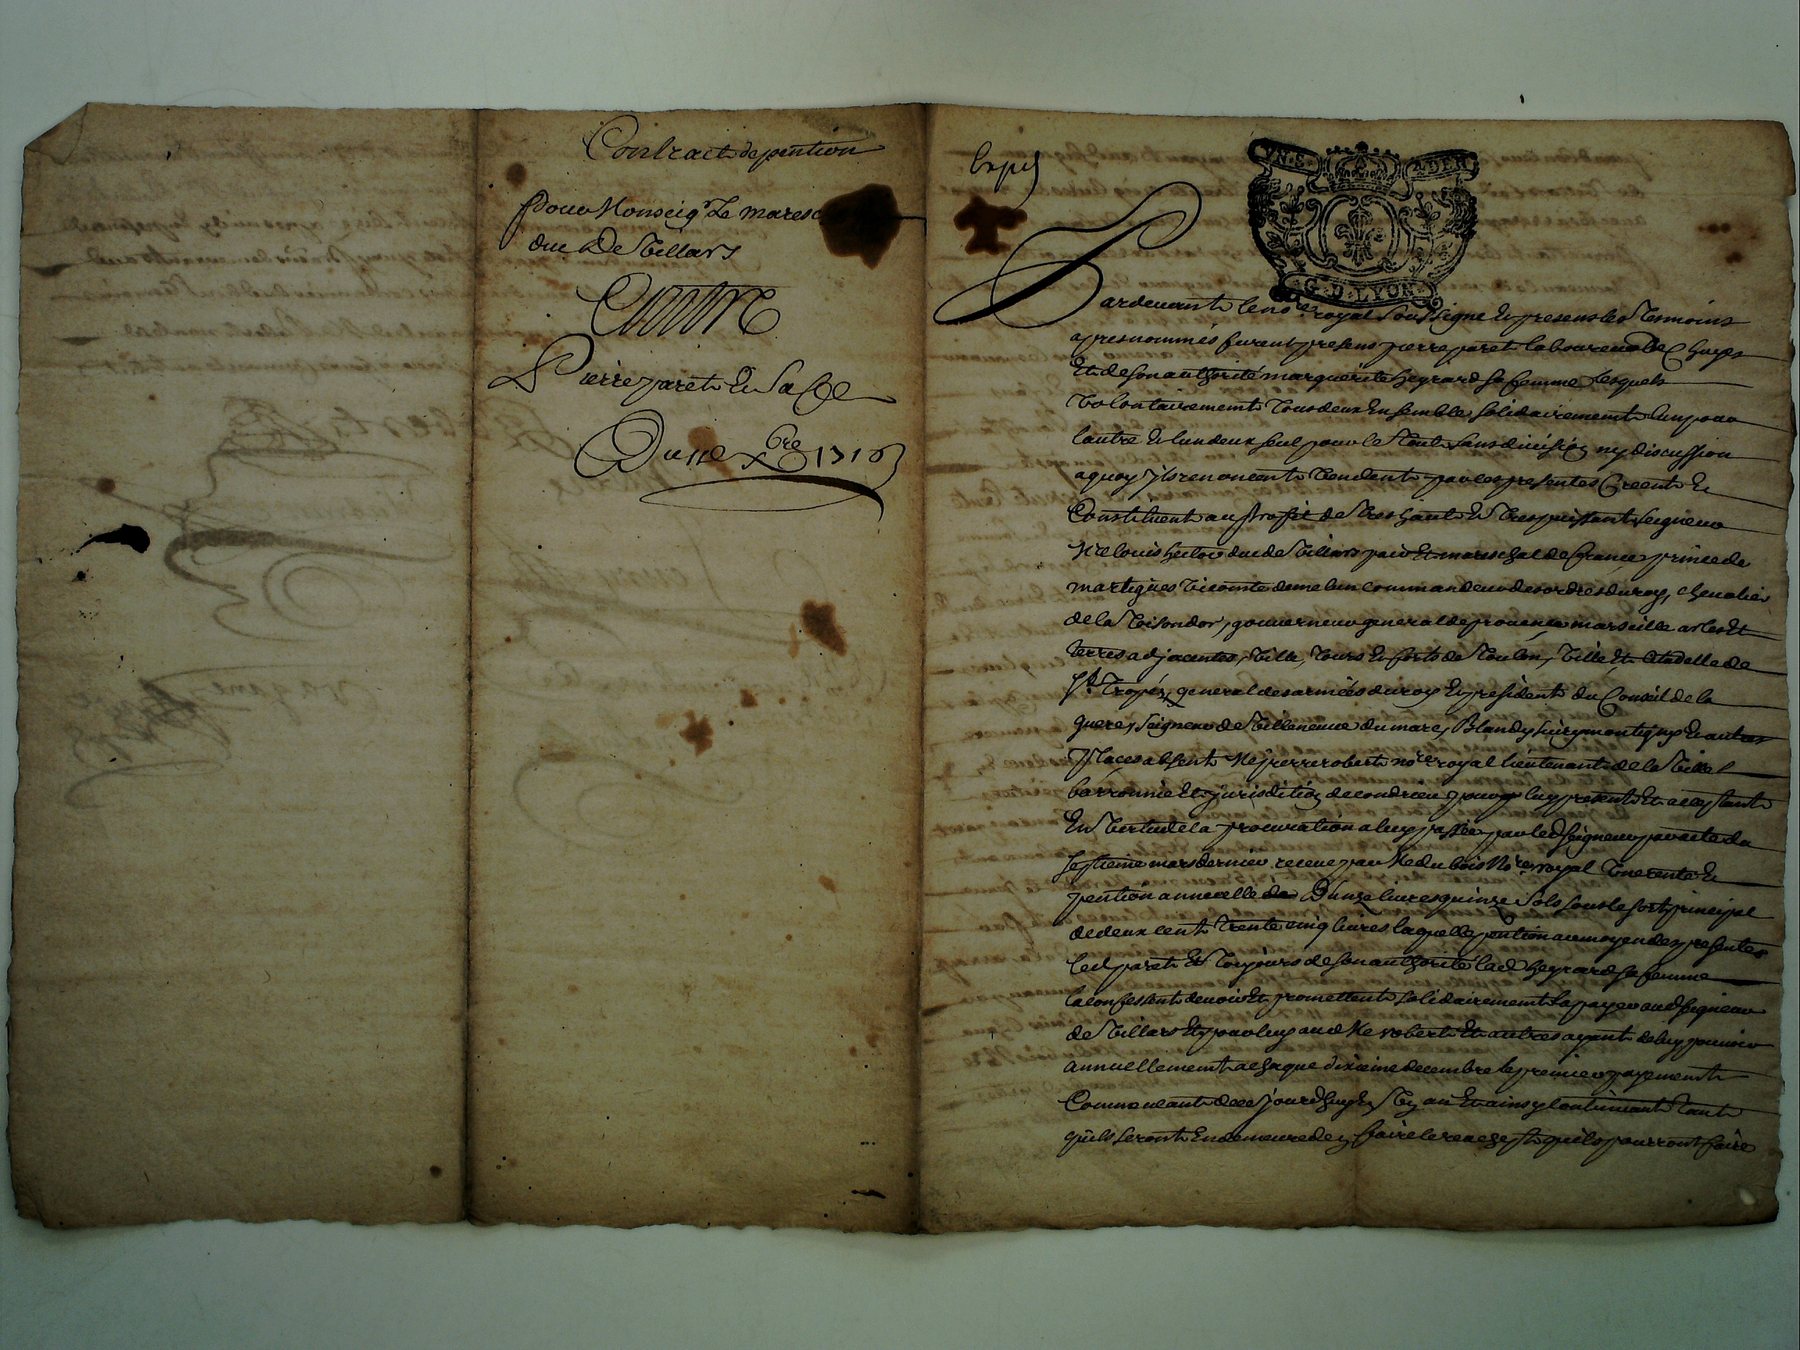 Contract de pention
Pour Monseigr Le maresc
duc De Villars
Contre
Pierre paret Et Sa fe
Du 10e Xbre 1716
Expé
VN.S. ADEN.
G.D.LYON.
Pardevant le nore royal soussigné Et presens les Tesmoins
apres nommés furent presens pierre paret laboureur De
Et de son authorité marguerite heyrard sa femme Lesquels
Volontairement Tous deux Ensemble solidairement lun pour
lautre Et lun deux seul pour le Tout sans division ny discussion
a quoy Ils renoncent Vendent par ces presentes Creent Et
Constituent au profit de Tres haut Et Tres puissant seigneur
Mre louis hector duc de Villars pair Et mareschal de france prince de
martigues Vicomte de melun commandeur des ordres du roy, chevalier
de la Toison dor, gouverneur general de provence marseille arles Et
terres adjacentes, Ville, Tours Et forts de Toulon, Ville Et Citadelle de
St Tropéz, general des armées du roy Et president du Conseil de la
guere, seigneur de Villeneuve du mare, Blandy, montigny Et autres
places absent Me pierre robert nore royal lieutenant de la Ville
barronnie Et jurisdition de condrieu pour luy present Et acceptant
En Vertu de la procuration a luy passée par led seigneur par acte du
septieme mars dernier receue par Me du bois Nore royal Une rente Et
pention annuelle de Dunze livres quinze sols sous le sort principal
de deux cent Trente cinq livres laquelle pention au moyen des presentes
led paret Et Toujours de son authorité lad heyrard sa femme
la confessent devoir Et promettent solidairement la payer aud seigneur
de Villars Et pour luy aud Me robert Et autres ayant de luy pouvoir
annuellement a chaque dixieme decembre le premier payement
Commencant de ce jourdhuy En Un an Et ainsy continuant Tant
quils seront En demeure den faire le reachept quils pourront faire